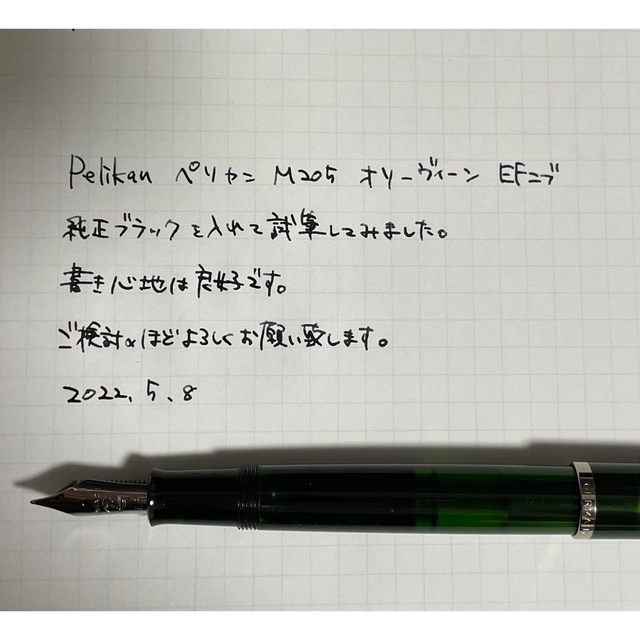 Pelikan ペリカン M205 オリーヴィーン EFニブ
純正ブラックを入れて試筆してみました。
書き心地は良好です。
ご検討のほどよろしくお願い致します。
2022.5.8